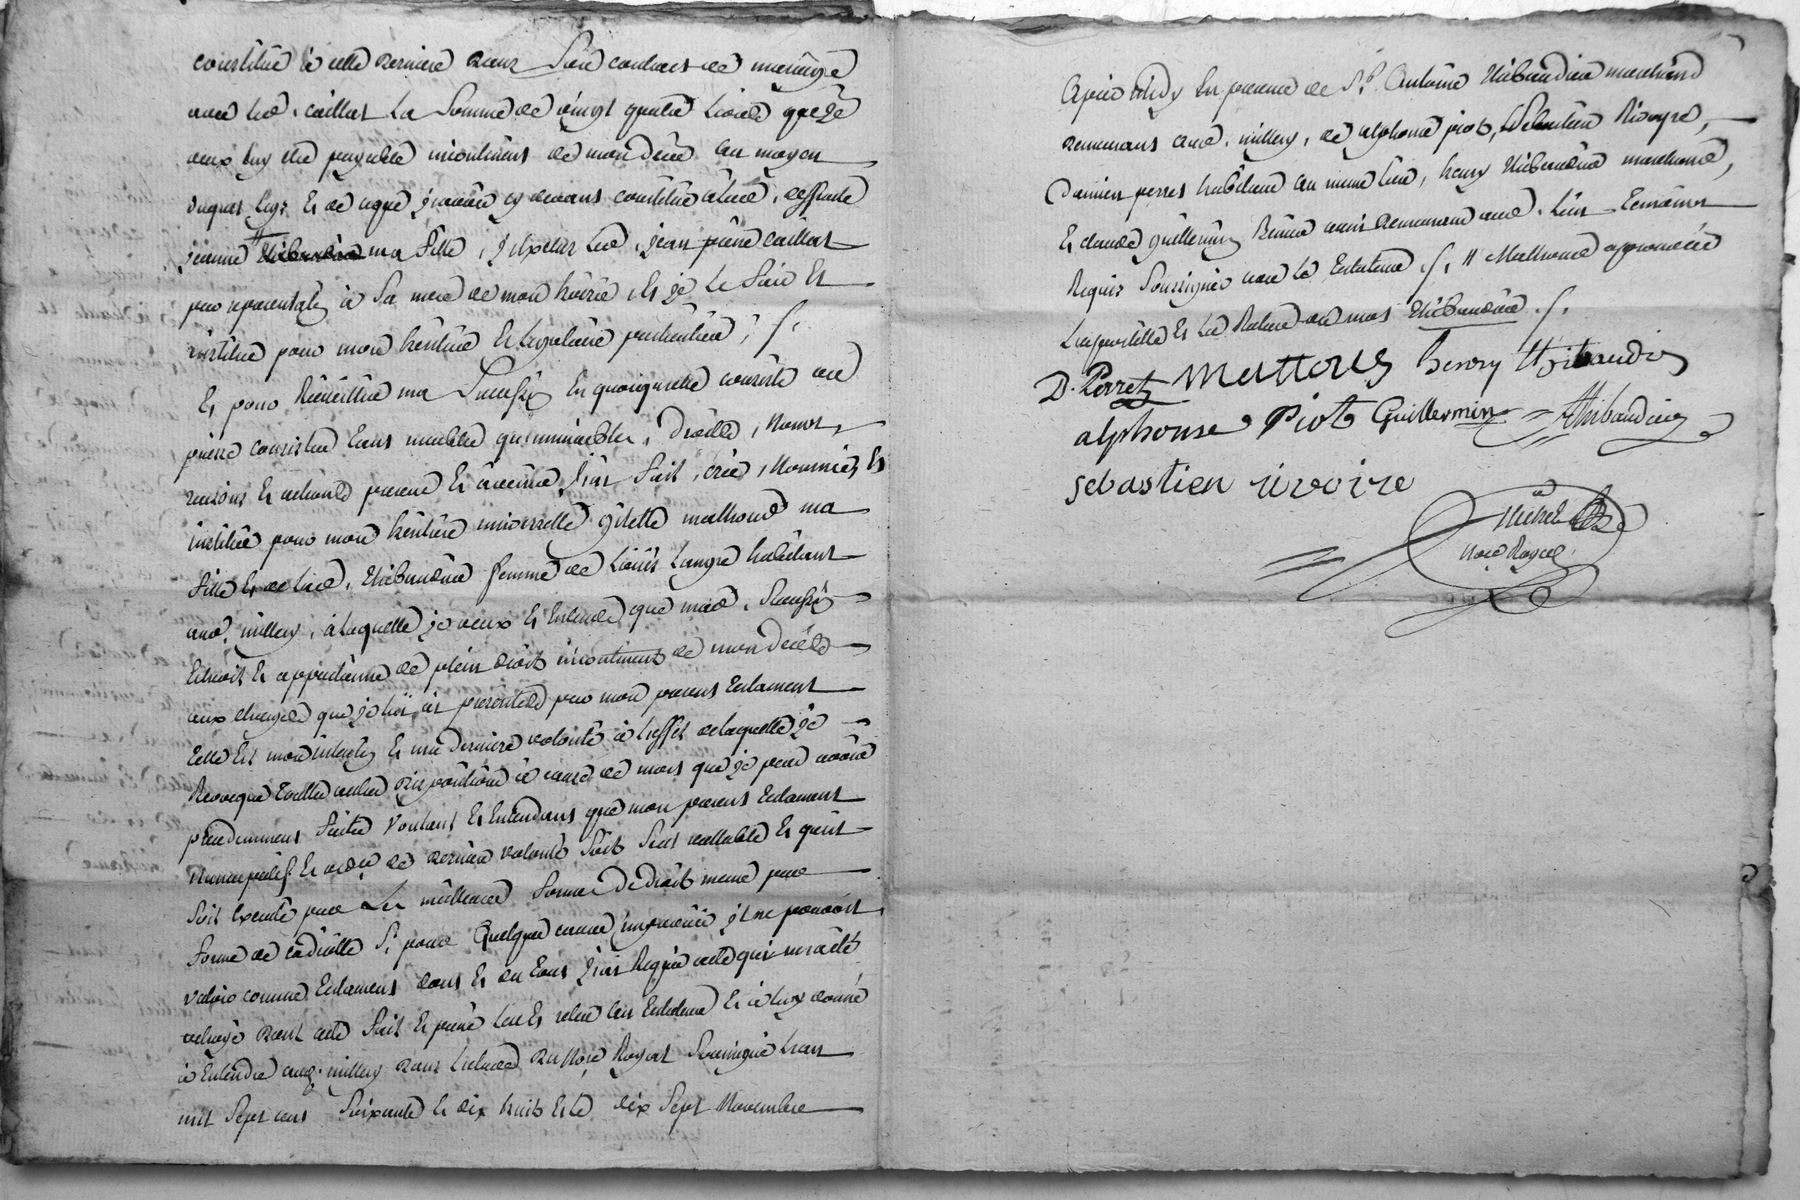 constitué à cette derniere dans Son contract de mariage
avec led. caillat La Somme de vingt quatre Livres que je
veux luy être payable incontinent de mon décès au moyen
duquel legs Et de ce que j'avois cy devant constitué à lad.
jeanne Thibaudier ma fille, led. jean pierre caillat
à Sa mere de mon hoirie, Et je Le fais Et
institue pour mon héritier Et Legataire particulier ; /.
Et pour Recueillir ma Succession En quoiqu'elle consiste ou
puisse consister tant meubles qu'immeubles, droits, Noms,
raisons Et actions présents Et à venir, j'ai fait, créé, Nommé, Et
institué pour mon héritiere universelle gilette mathoud ma
fille Et de lad. Thibaudier femme de Loüis Langre habitant
aud. millery, à laquelle je veux Et Entends que mad. Succession
Echoit Et appartienne de plein droit incontinent de mon décès
aux charges que je lui ai par mon present testament
telle Est mon intention Et ma derniere volonté à l'effet de laquelle je
Revoque toutes autres dispositions à cause de mort que je peux avoir
précédemment faites Voulant Et Entendant que mon present testament
Nuncupatif Et de derniere volonté Soit Seul vallable Et qu'il
Soit Executé par La meilleure forme de droit meme par
forme de codicille Si pour Quelque cause impreveüe il ne pouvoit
valoir comme testament dont Et du tout j'ai Requis acte qui m'a été
octroyé dont acte fait Et passé leu Et relu au testateur Et à luy donné
à Entendre aud. millery dans L'etude du No.re Royal Soussigné L'an
mil Sept cent Soixante Et dix huit Et le dix Sept Novembre
après midy En presence de S.r Antoine Thibaudier marchand
demeurant aud. millery, de alphonse piot, Sebastien Rivoyre,
Damien perret habitant au meme lieu, henry Thibaudier marchand,
Et claude guillermin demeurant aud. lieu Temoins
Requis Soussignés avec le testateur /. // Mathoud approuvée
L'apostille Et La Rature du mot Thibaudier /.
D. Perret Mattoud henry thibaudier
alphonse Piot Guillermin AThibaudier
Sebastien rivoire
Michel
No.re Royal